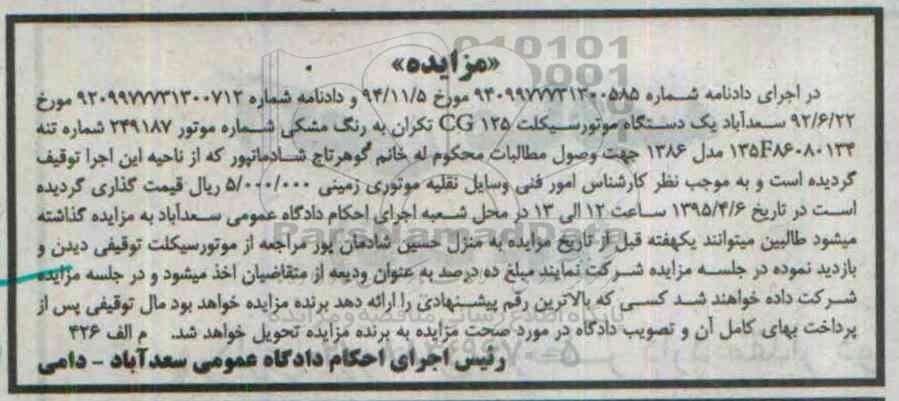 «مزایده»
در اجرای دادنامه شماره ۹۴۰۹۹۷۷۷۳۱۳۰۰۵۸۵ مورخ ۹۴/۱۱/۵ و دادنامه شماره ۹۲۰۹۹۷۷۷۳۱۳۰۰۷۱۲ مورخ
۹۲/۶/۲۲ سعدآباد یک دستگاه موتورسیکلت CG ۱۲۵ تکران به رنگ مشکی شماره موتور ۲۴۹۱۸۷ شماره تنه
۱۲۵F۸۶۰۸۰۱۳۴ مدل ۱۳۸۶ جهت وصول مطالبات محکوم له خانم گوهرتاج شادمانپور که از ناحیه این اجرا توقیف
گردیده است و به موجب نظر کارشناس امور فنی وسایل نقلیه موتوری زمینی ۵/۰۰۰/۰۰۰ ریال قیمت گذاری گردیده
است در تاریخ ۱۳۹۵/۴/۶ ساعت ۱۲ الی ۱۳ در محل شعبه اجرای احکام دادگاه عمومی سعدآباد به مزایده گذاشته
میشود طالبین میتوانند یکهفته قبل از تاریخ مزایده به منزل حسین شادمان پور مراجعه از موتورسیکلت توقیفی دیدن و
بازدید نموده در جلسه مزایده شرکت نمایند مبلغ ده درصد به عنوان ودیعه از متقاضیان اخذ میشود و در جلسه مزایده
شرکت داده خواهند شد کسی که بالاترین رقم پیشنهادی را ارائه دهد برنده مزایده خواهد بود مال توقیفی پس از
پرداخت بهای کامل آن و تصویب دادگاه در مورد صحت مزایده به برنده مزایده تحویل خواهد شد. م الف ۴۲۶
رئیس اجرای احکام دادگاه عمومی سعدآباد - دامی
ParsNamadData
پایگاه اطلاع رسانی مناقصه و مزایده